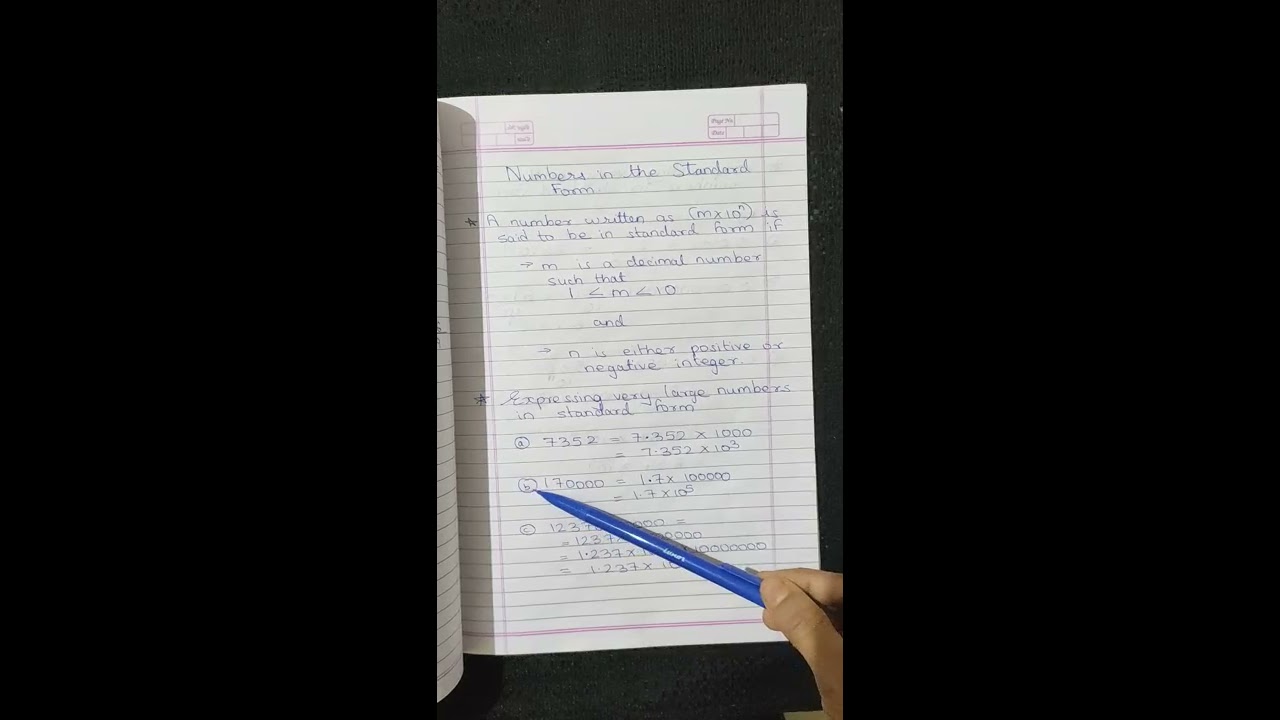 Page No.
Date
Numbers in the Standard
Form.
* A number written as (m×10ⁿ) is
said to be in standard form if
→ m is a decimal number
such that
1 < m < 10
and
→ n is either positive or
negative integer.
* Expressing very large numbers
in standard form
(a) 7352 = 7.352 × 1000
= 7.352 × 10³
(b) 170000 = 1.7 × 100000
= 1.7 × 10⁵
(c)
= 1237
= 1.237 ×
= 1.237 ×